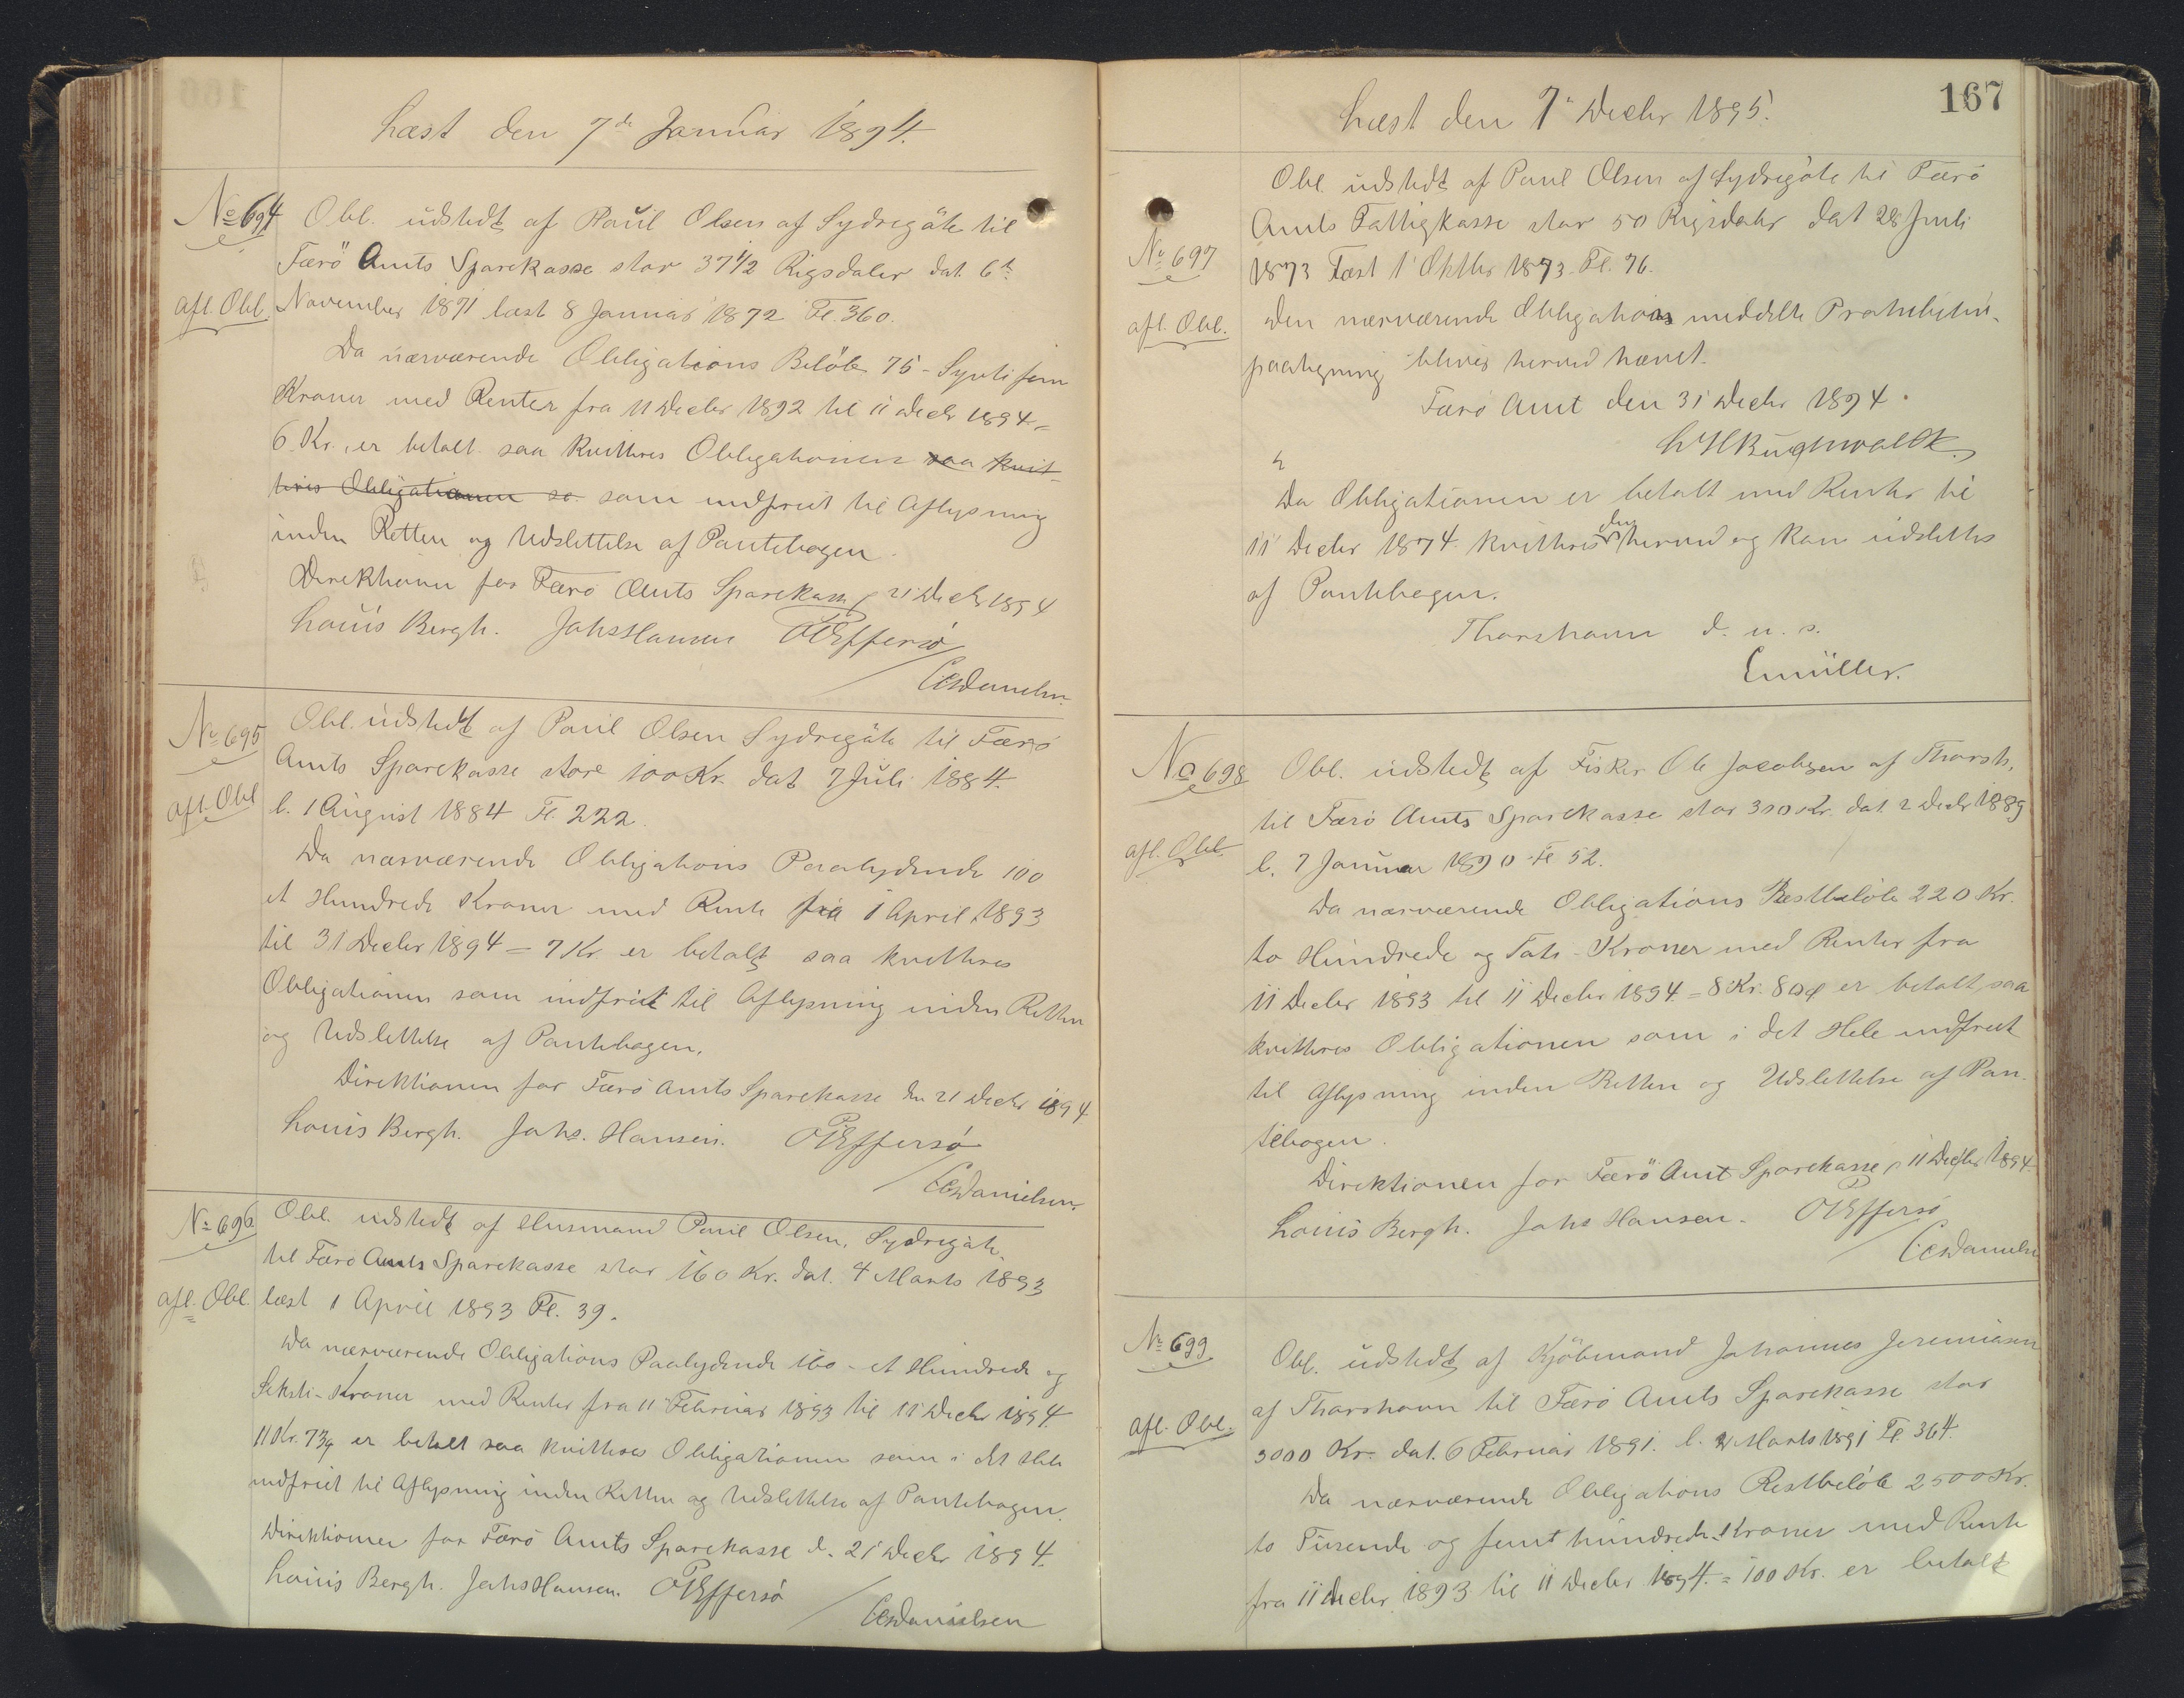 Læst den 7de Januar 1894.
No 694
Obl. udstedt af Paul Olsen af Sydregöte til
Færö Amts Sparekasse stor 37 1/2 Rigsdaler dat. 6te
afl. Obl.
November 1871 læst 8 Januar 1872 Fl. 360.
Da nærværende Obligations Belöb 75 - Syvti fem
Kroner med Renter fra 11 Decbr 1892 til 11 Decbr 1894 =
6 Kr. er betalt saa kvitteres Obligationen saa kvit-
teres Obligationen so som indfriet til Aflysning
inden Retten og Udslettelse af Pantebogen.
Direktionen for Færö Amts Sparekasse, 21 Decbr 1894
Louis Bergh. Johs Hansen OEffersö
/ CCDanielsen.
No 695
Obl. udstedt af Paul Olsen Sydregöte til Færö
Amts Sparekasse stor 100 Kr. dat 7 Juli 1884.
afl. Obl
l. 1 August 1884 Fl. 222.
Da nærværende Obligations Paalydende 100
et Hundrede Kroner med Rente fra 1 April 1893
til 31 Decbr 1894 = 7 Kr er betalt saa kvitteres
Obligationen som indfriet til Aflysning inden Retten
og Udslettelse af Pantebogen.
Direktionen for Færö Amts Sparekasse den 21 Decbr 1894
Louis Bergh. Johs. Hansen. OEffersö
/ CCDanielsen.
No 696
Obl. udstedt af Husmand Paul Olsen, Sydregöte.
til Færö Amts Sparekasse stor 160 Kr. dat. 4 Marts 1893
afl. Obl.
læst 1 April 1893 Fl. 39.
Da nærværende Obligations Paalydende 160 - et Hundrede og
Seksti - Kroner med Renter fra 11 Februar 1893 til 11 Decbr 1894.
11 Kr. 73 ø er betalt saa kvitteres Obligationen som i det Hele
indfriet til Aflysning inden Retten og Udslettelse af Pantebogen.
Direktionen for Færö Amts Sparekasse d. 21 Decbr 1894.
Louis Bergh. Johs Hansen. OEffersö
/ CCDanielsen
167
Læst den 7de Decbr 1895.
Obl. udstedt af Paul Olsen af Sydregöte til Færö
Amts Fattigkasse stor 50 Rigsdaler dat 28 Juli
No 697
1873 læst 1 Oktbr 1873 Fl. 76.
afl. Obl.
Den nærværende Obligations meddelte Prohibitiv-
paategning bliver herved hævet.
Færö Amt den 31 Decbr 1894.
LHBuchwaldt
Da Obligationen er betalt med Renter til
11 Decbr 1874. kvitteres den herved og kan udslettes
af Pantebogen.
Thorshavn d. u. s.
Emüller.
No 698
Obl. udstedt af Fisker Ole Jacobsen af Thorsh.
til Færö Amts Sparekasse stor 300 Kr. dat. 2 Decbr 1889
afl. Obl.
l. 7 Januar 1890 Fl 52.
Da nærværende Obligations Restbelöb 220 Kr.
to Hundrede og Tyve - Kroner med Renter fra
11 Decbr 1893 til 11 Decbr 1894 = 8 Kr. 80 ø er betalt, saa
kvitteres Obligationen som i det Hele indfriet
til Aflysning inden Retten og Udslettelse af Pan-
tebogen.
Direktionen for Færö Amt Sparekasse, 11 Decbr 1894.
Louis Bergh. Johs Hansen. OEffersö
/ CCDanielsen
No 699
Obl. udstedt af Kjöbmand Johannes Jeremiasen
af Thorshavn til Færö Amts Sparekasse stor
afl. Obl.
3000 Kr. dat. 6 Februar 1891. l. 2 Marts 1891 Fl. 364.
Da nærværende Obligations Restbelöb 2500 Kr.
to Tusende og femhundrede Kroner med Rente
fra 11 Decbr 1893 til 11 Decbr 1894. = 100 Kr. er betalt